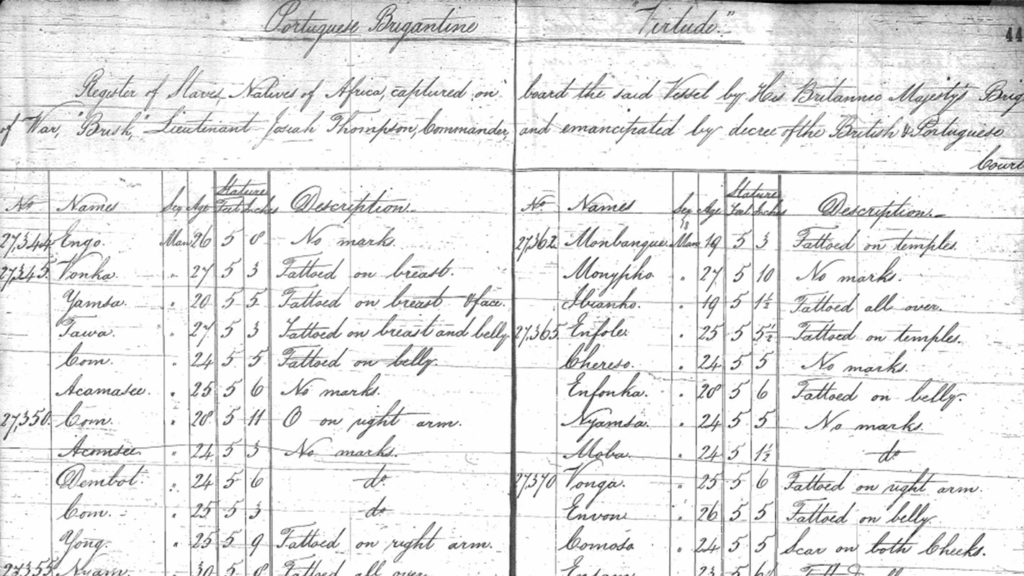 Portuguese Brigantine "Virtude."
44
Register of Slaves, Natives of Africa, captured on board the said Vessel by His Britannic Majesty's Brig
of War, "Brisk," Lieutenant Josiah Thompson, Commander, and emancipated by decree of the British & Portuguese
Court
No Names Sex Age Stature Feet Inches Description
27,344 Engo Man 26 5 8 No marks.
27,345 Vonka " 27 5 3 Tattoed on breast.
Yamsa " 20 5 5 Tattoed on breast & face.
Tawa " 27 5 3 Tattoed on breast and belly
Com " 24 5 5 Tattoed on belly.
Acamasee " 25 5 6 No marks.
27,350 Com " 28 5 11 O on right arm.
Acomsee " 24 5 3 No marks.
Dembot " 24 5 6 do
Com " 25 5 3 do
Yong " 25 5 9 Tattoed on right arm.
27,355 Nyam " 30 5 8 Tattoed all over.
No Names Sex Age Stature Feet Inches Description
27,362 Monbanque Man 19 5 3 Tattoed on temples.
Monypho " 27 5 10 No marks.
Ibianho " 19 5 1½ Tattoed all over.
27,365 Enfole " 25 5 5½ Tattoed on temples.
Chereso " 24 5 5 No marks.
Enfonka " 28 5 6 Tattoed on belly.
Nyamsa " 24 5 5 No marks.
Moba " 24 5 1½ do
27,370 Vonga " 25 5 6 Tattoed on right arm.
Envon " 26 5 5 Tattoed on belly.
Comoso " 24 5 5 Scar on both Cheeks.